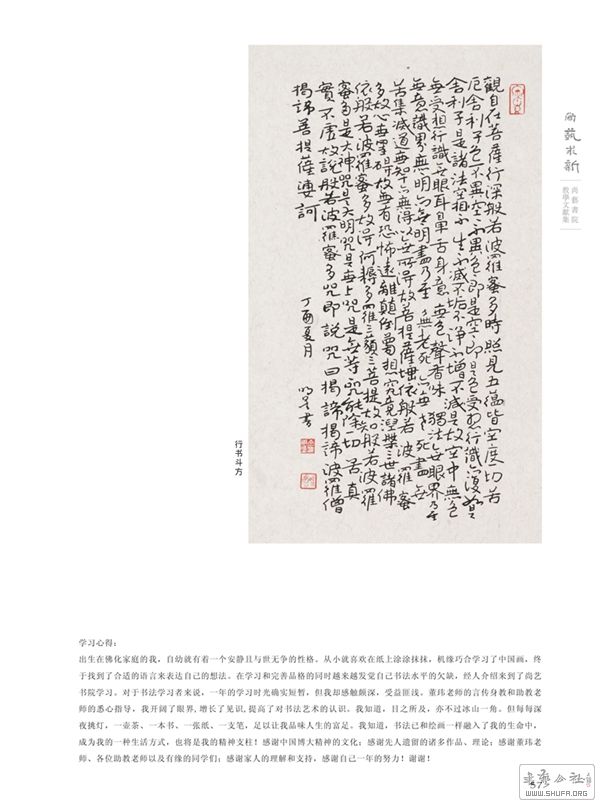 尚藝求新
尚藝書院
教學文獻集
觀自在菩薩行深般若波羅蜜多時照見五蘊皆空度一切苦
厄舍利子色不異空空不異色色即是空空即是色受想行識亦復如是
舍利子是諸法空相不生不滅不垢不淨不增不減是故空中無色
無受想行識無眼耳鼻舌身意無色聲香味觸法無眼界乃至
無意識界無無明亦無無明盡乃至無老死亦無老死盡無
苦集滅道無智亦無得以無所得故菩提薩埵依般若波羅蜜
多故心無罣礙故無有恐怖遠離顛倒夢想究竟涅槃三世諸佛
依般若波羅蜜多故得阿耨多羅三藐三菩提故知般若波羅
蜜多是大神咒是大明咒是無上咒是無等等咒能除一切苦真
實不虛故說般若波羅蜜多咒即說咒曰揭諦揭諦波羅僧
揭諦菩提薩婆訶
丁酉夏月
行书斗方
学习心得：
出生在佛化家庭的我，自幼就有着一个安静且与世无争的性格。从小就喜欢在纸上涂涂抹抹，机缘巧合学习了中国画，终
于找到了合适的语言来表达自己的想法。在学习和完善品格的同时越来越发觉自己书法水平的欠缺，经人介绍来到了尚艺
书院学习。对于书法学习者来说，一年的学习时光确实短暂，但我却感触颇深，受益匪浅。董玮老师的言传身教和助教老
师的悉心指导，我开阔了眼界，增长了见识，提高了对书法艺术的认识。我知道，目之所及，亦不过冰山一角。但每每深
夜挑灯，一壶茶、一本书、一张纸、一支笔，足以让我品味人生的富足。我知道，书法已和绘画一样融入了我的生命中，
成为我的一种生活方式，也将是我的精神支柱！感谢中国博大精深的文化；感谢先人遗留的诸多作品、理论；感谢董玮老
师、各位助教老师以及有缘的同学们；感谢家人的理解和支持，感谢自己一年的努力！谢谢！
57
WWW.SHUFA.ORG